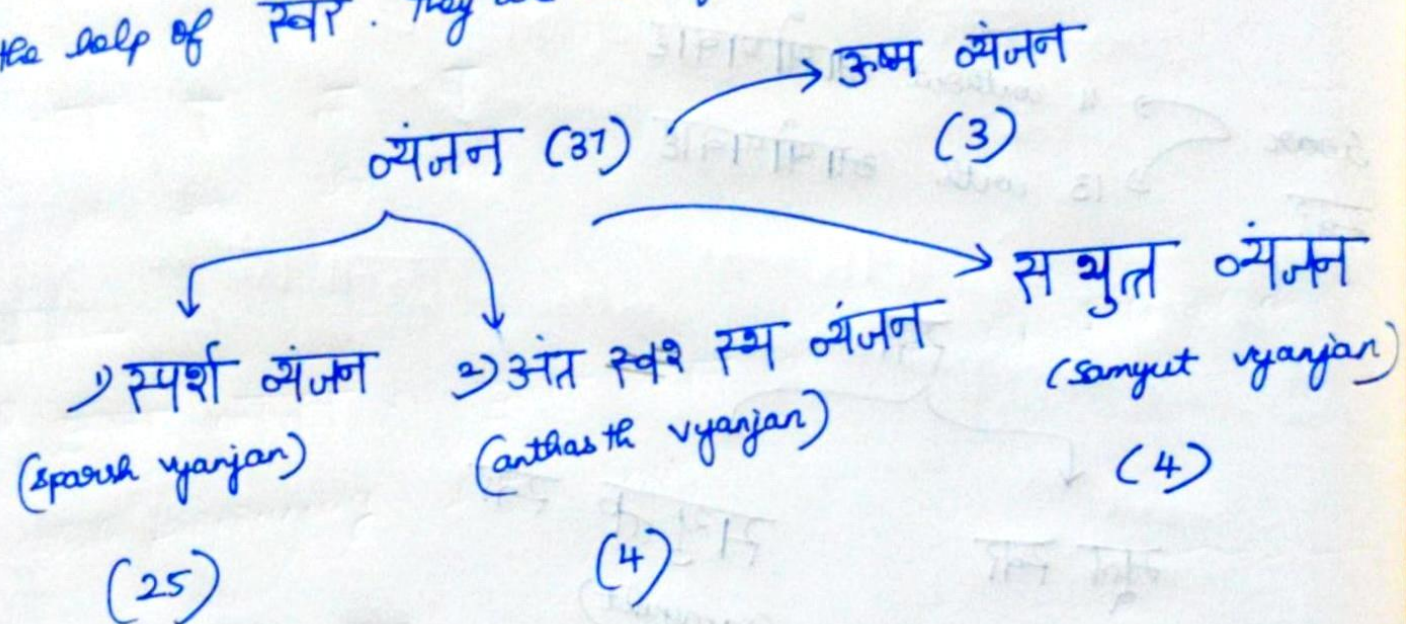 the help of स्वर. They
ऊष्म व्यंजन
(3)
व्यंजन (37)
सयुत व्यंजन
(samyut vyanjan)
(4)
1) स्पर्श व्यंजन
(sparsh vyanjan)
(25)
2) अंत स्वर स्थ व्यंजन
(anthasth vyanjan)
(4)